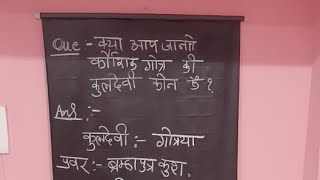 Que :- क्या आप जानते
कौशिक गोत्र की
कुलदेवी कौन है ?
Ans :-
कुलदेवी :- गोत्रया
प्रवर :- ब्रम्हापुत्र कुश,